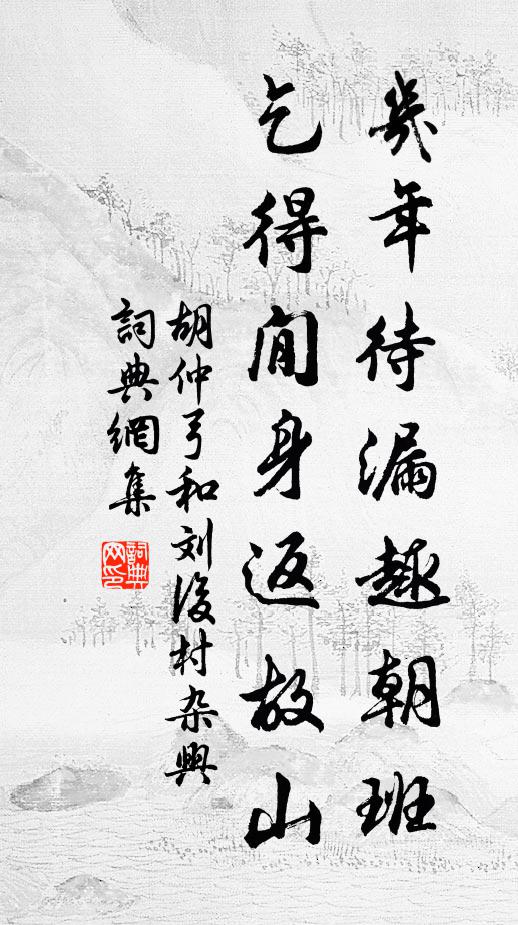 幾年待漏趣朝班
乞得閒身返故山
胡仲弓和刘後村杂興
詞典網集
詞典网印